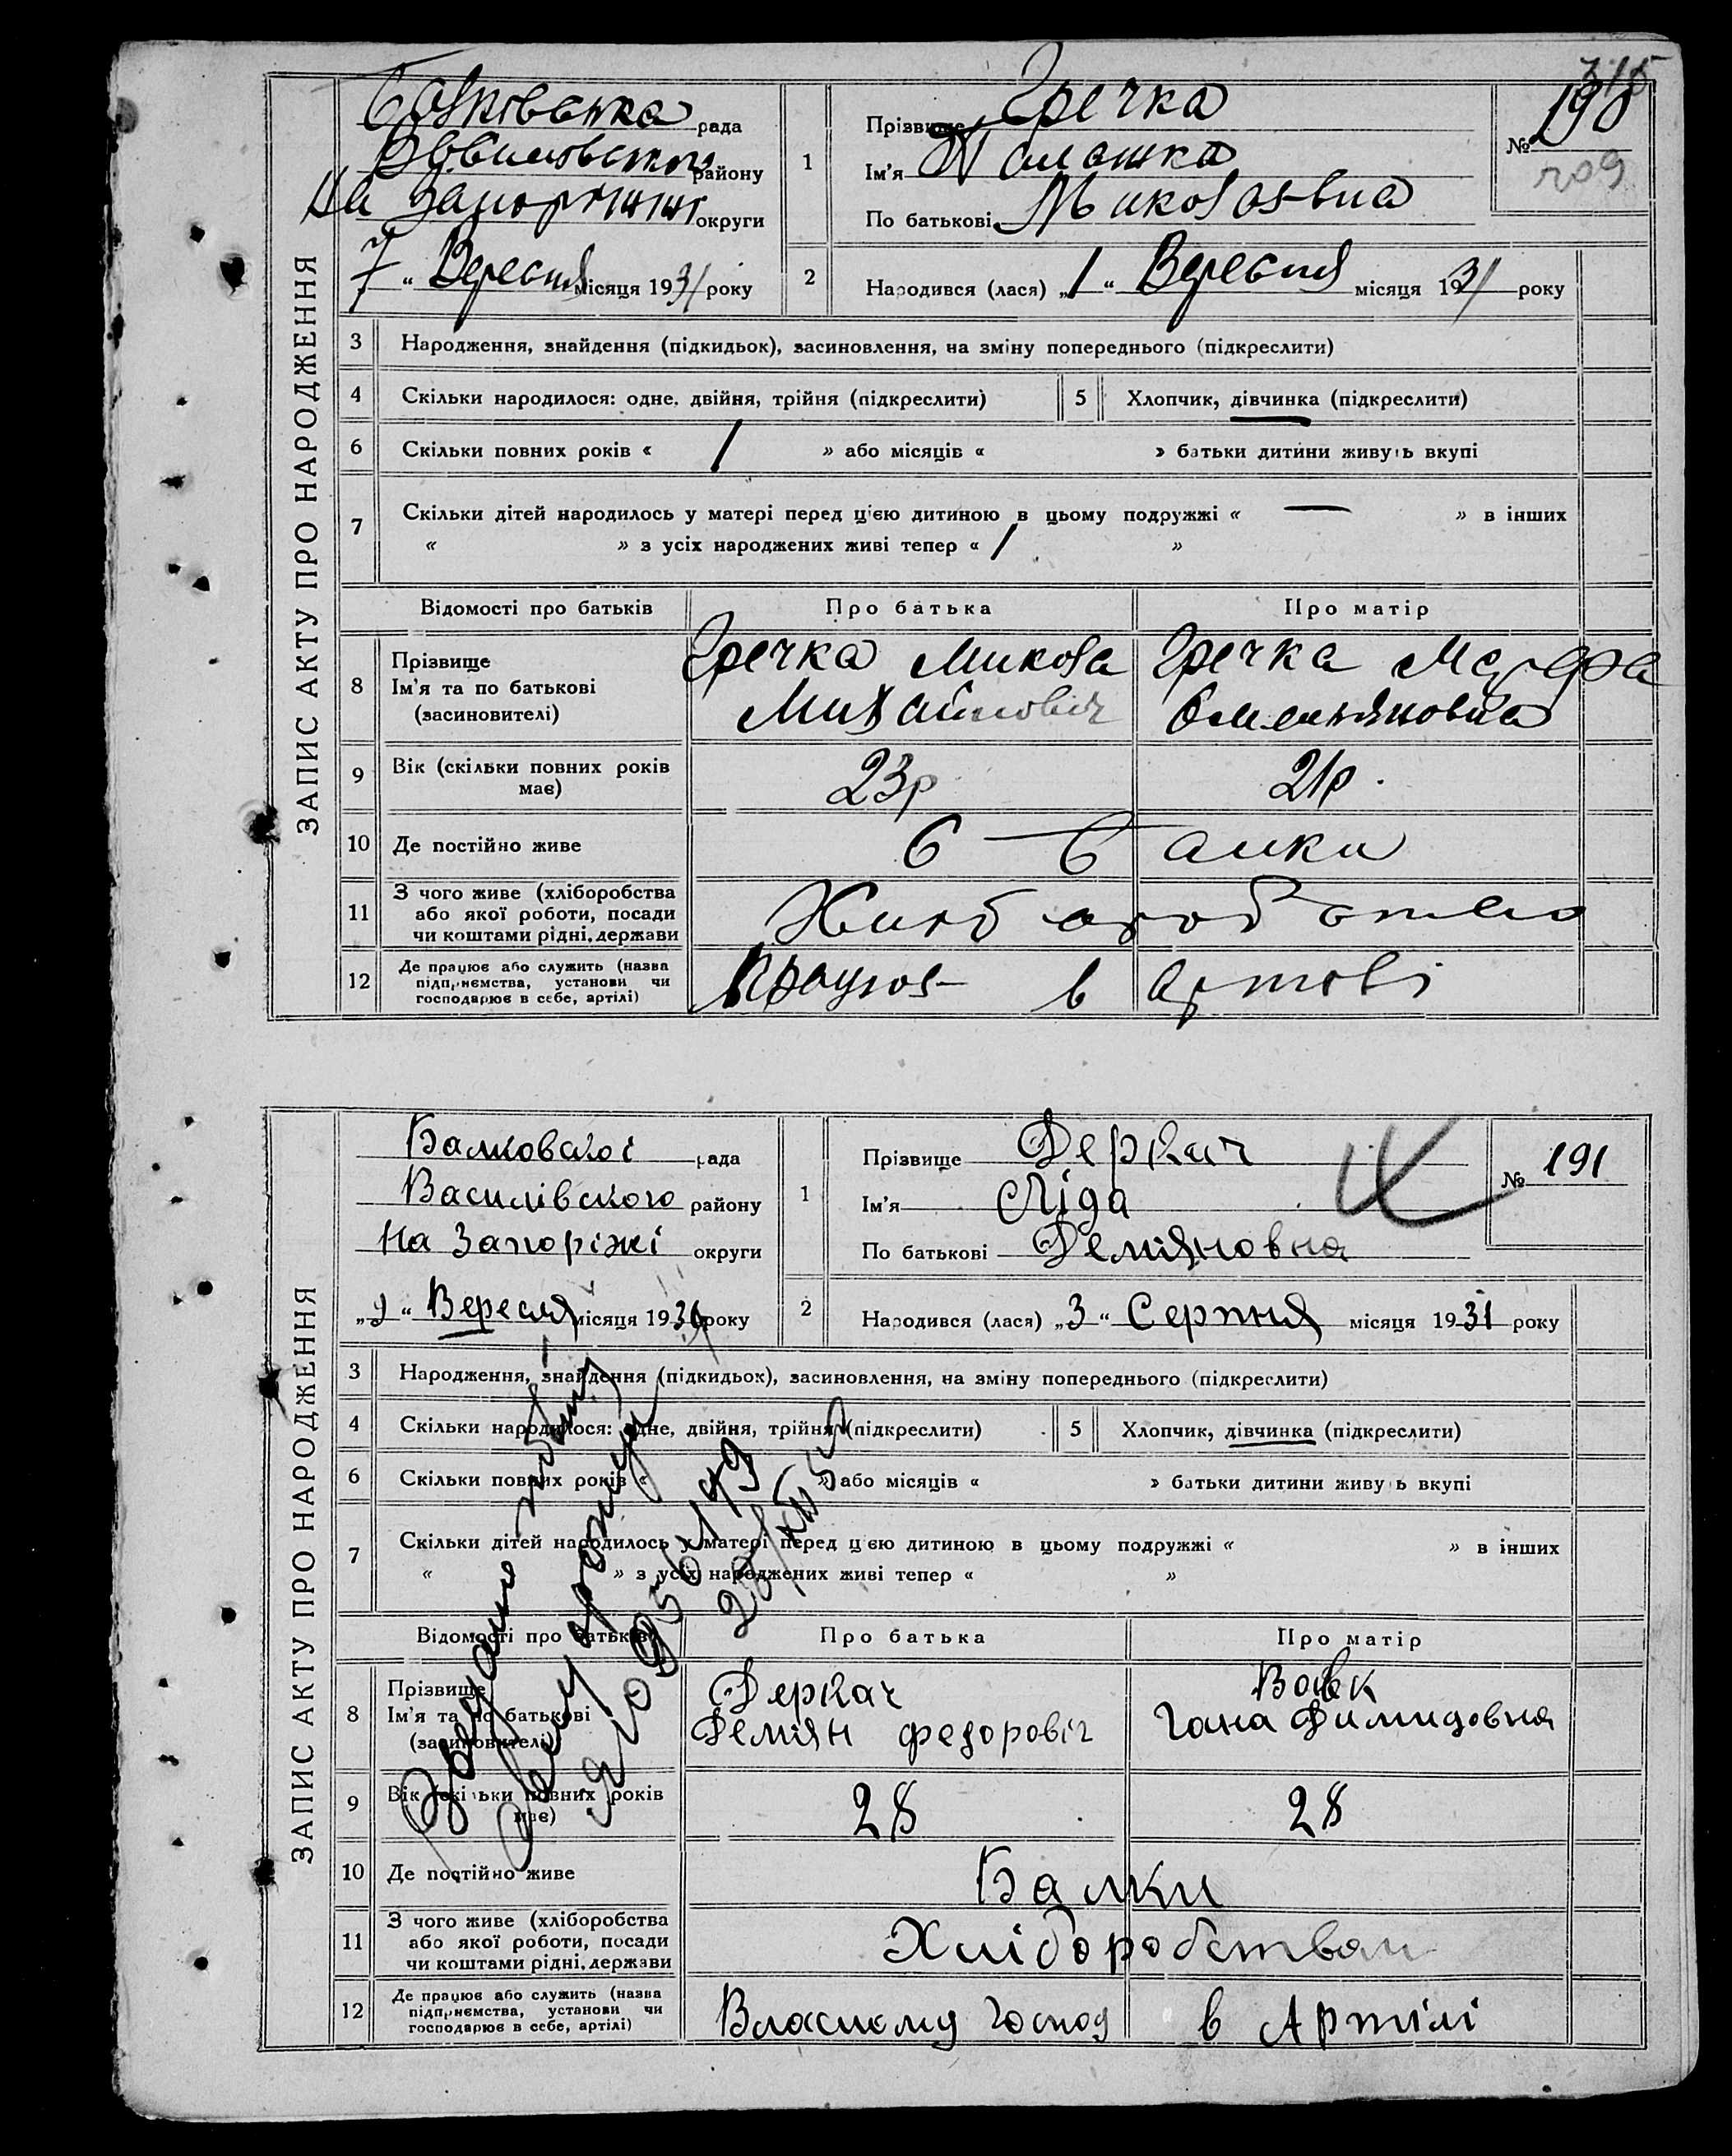 315
ЗАПИС АКТУ ПРО НАРОДЖЕННЯ
Балківська рада
району
На Запоріжжі округи
7 “ Вересня місяця 1931 року
1
Прізвище Гречка
Ім'я Палашка
По батькові Миколаєвна
№ 190
209
2
Народився (лася) „1“ Вересня місяця 1931 року
3 Народження, знайдення (підкидьок), засиновлення, на зміну попереднього (підкреслити)
4 Скільки народилося: одне, двійня, трійня (підкреслити) 5 Хлопчик, дівчинка (підкреслити)
6 Скільки повних років « 1 » або місяців « » батьки дитини живуть вкупі
7 Скільки дітей народилось у матері перед цією дитиною в цьому подружжі « — » в інших
« » з усіх народжених живі тепер « 1 »
Відомості про батьків Про батька Про матір
8 Прізвище
Ім'я та по батькові
(засиновителі)
Гречка Микола
Михайлович
Гречка Марфа
Омельяновна
9 Вік (скільки повних років має) 23р 21р.
10 Де постійно живе с Балки
11 З чого живе (хліборобства
або якої роботи, посади
чи коштами рідні, держави
12 Де працює або служить (назва
підприємства, установи чи
господарює в себе, артілі)
Працює в артілі
ЗАПИС АКТУ ПРО НАРОДЖЕННЯ
Балковскої рада
Василівского району
На Запоріжі округи
„9“ Вересня місяця 1931 року
1
Прізвище Деркач
Ім'я Ліда
По батькові Демяновна
№ 191
2
Народився (лася) „3“ Серпня місяця 1931 року
3 Народження, знайдення (підкидьок), засиновлення, на зміну попереднього (підкреслити)
4 Скільки народилося: одне, двійня, трійня (підкреслити) 5 Хлопчик, дівчинка (підкреслити)
6 Скільки повних років « » або місяців « » батьки дитини живуть вкупі
7 Скільки дітей народилось у матері перед цією дитиною в цьому подружжі « » в інших
« » з усіх народжених живі тепер « »
Відомості про батьків Про батька Про матір
8 Прізвище
Ім'я та по батькові
(засиновителі)
Деркач
Демян Федоровіч
Вовк
Гана Димидовна
9 Вік (скільки повних років має) 28 28
10 Де постійно живе Балки
11 З чого живе (хліборобства
або якої роботи, посади
чи коштами рідні, держави
Хліборобством
12 Де працює або служить (назва
підприємства, установи чи
господарює в себе, артілі)
Власному господ в Артілі